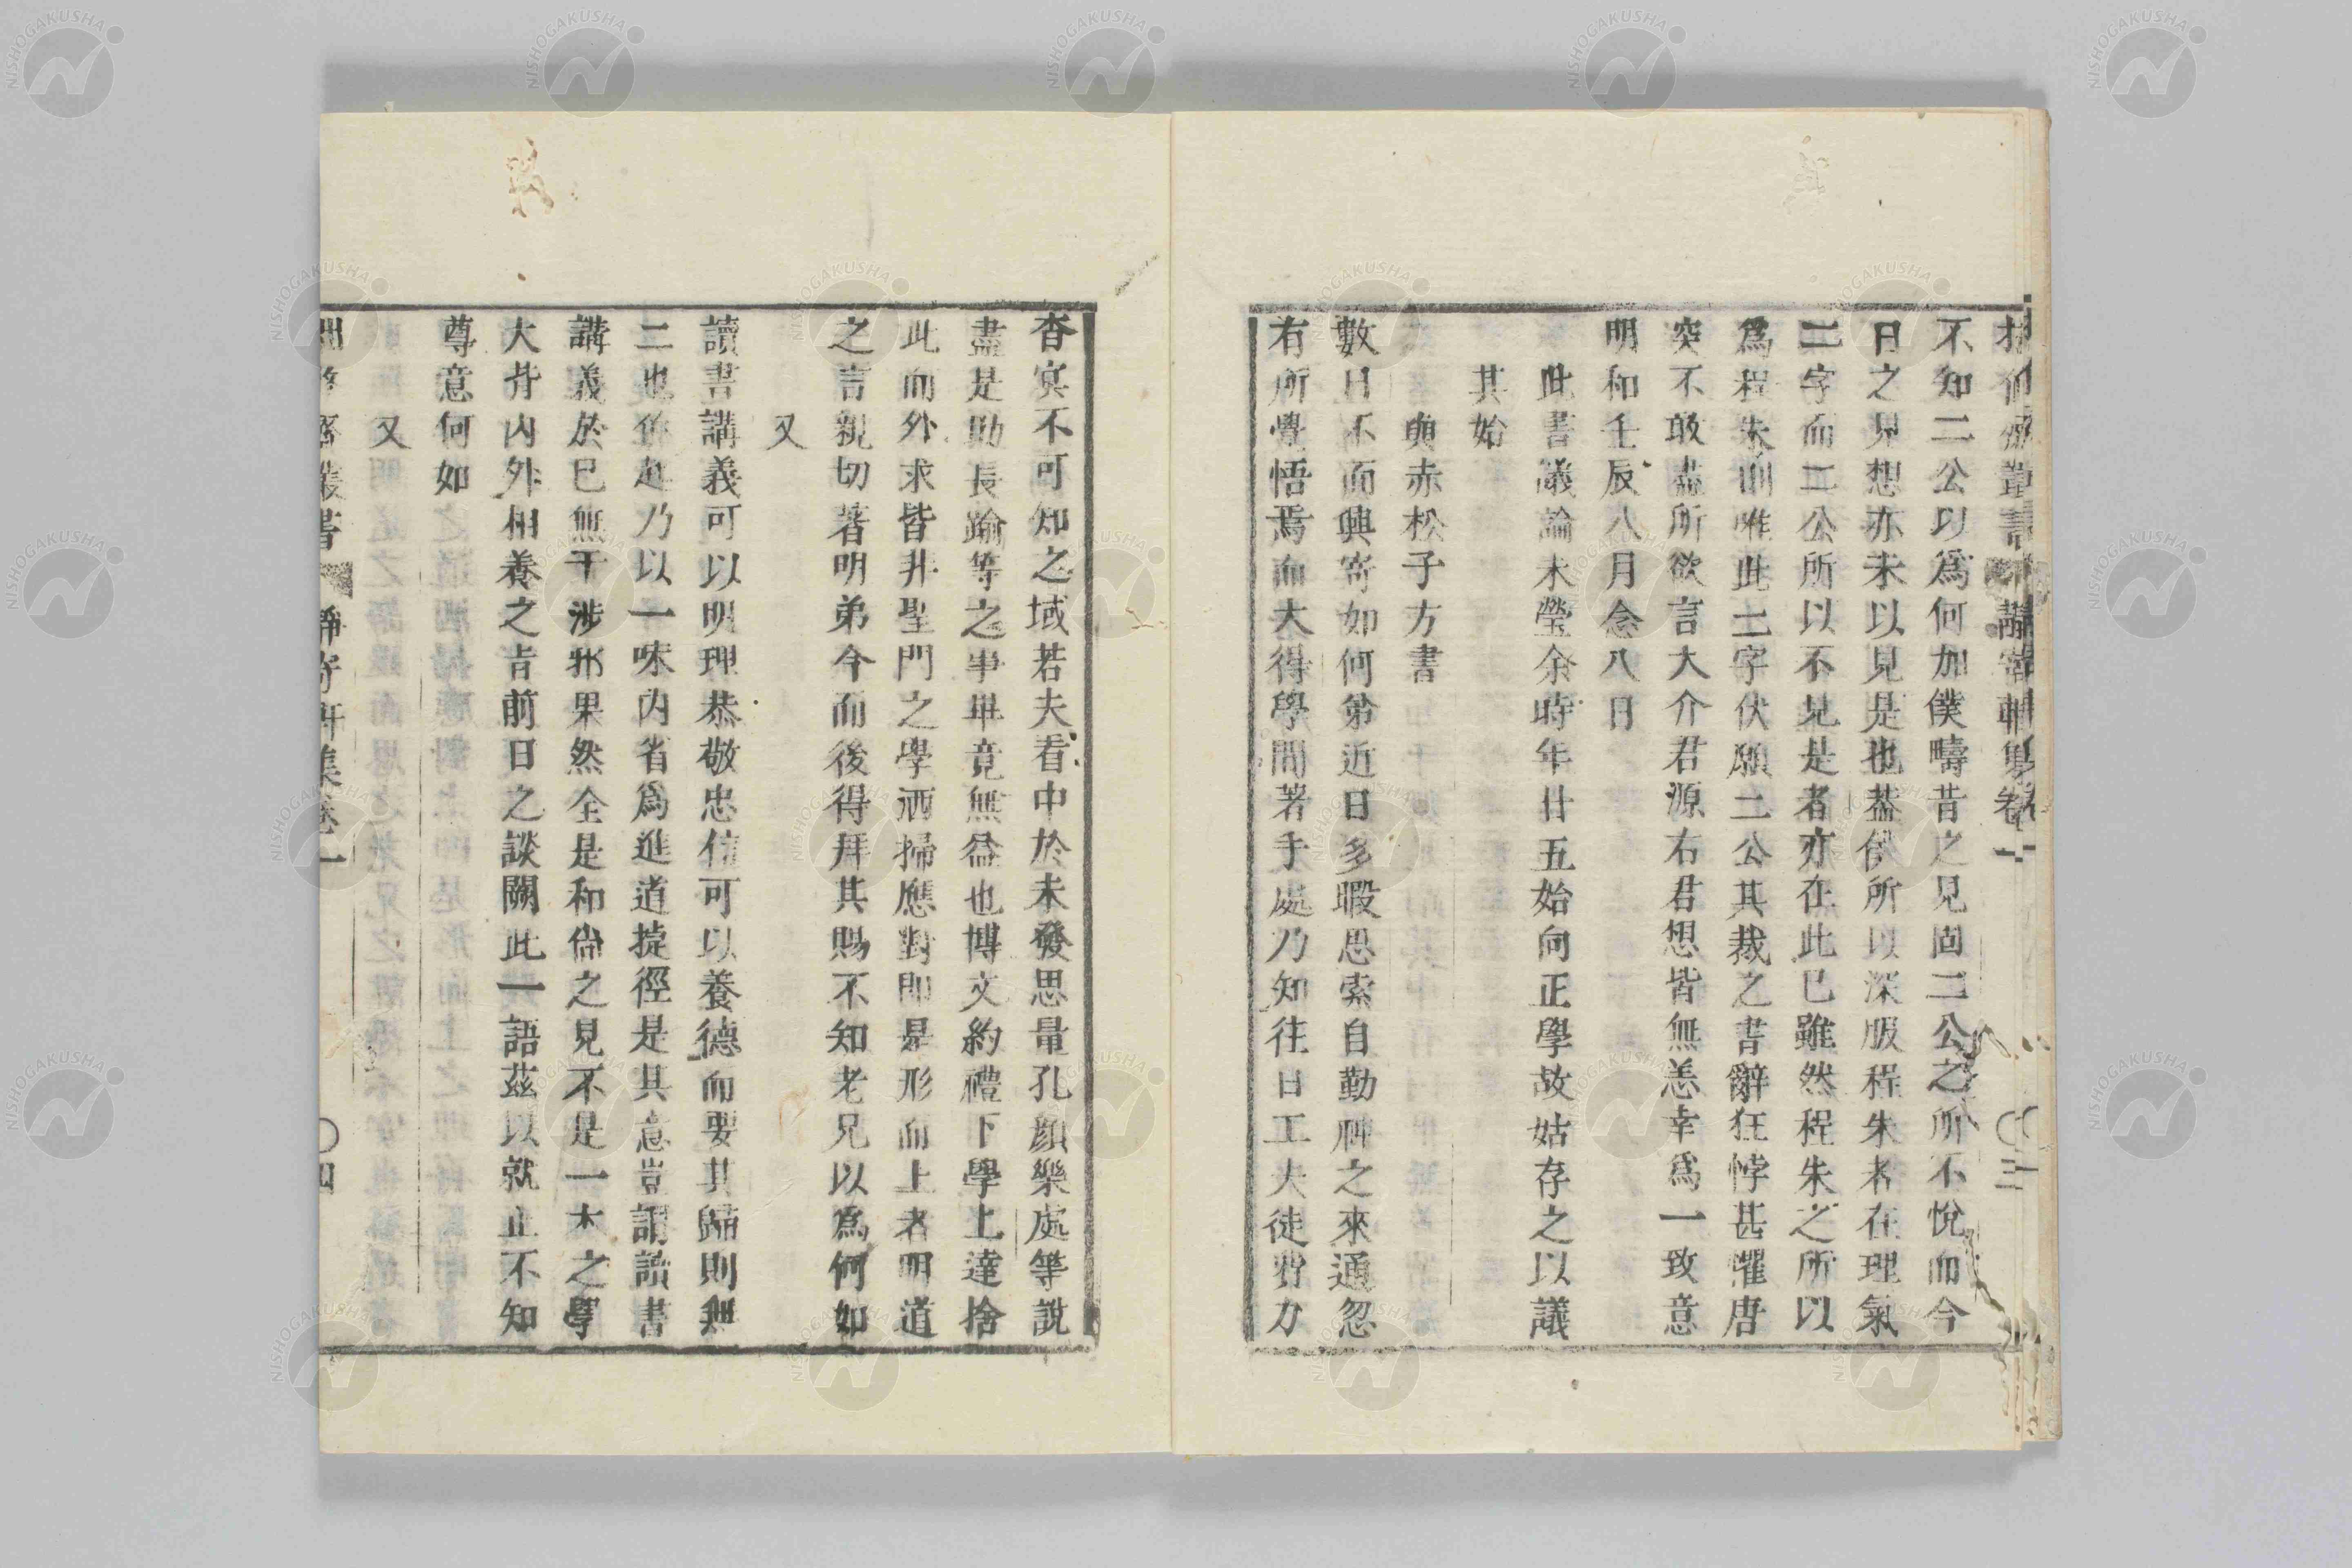 不知二公以爲何如僕疇昔之見固二公之所不悅而今
日之見想亦未以見是也蓋僕所以深服程朱者在理氣
二字而二公所以不見是者亦在此已雖然程朱之所以
爲程朱則唯此二字伏願二公其裁之書辭狂悖甚懼唐
突不敢盡所欲言大介君源右君想皆無恙幸爲一致意
明和壬辰八月念八日
此書議論未瑩余時年廿五始向正學故姑存之以議
其始
與赤松子方書
數日不面興寄如何弟近日多暇思索自勤神之來通忽
有所覺悟焉而大得學問著手處乃知往日工夫徒費力
杳冥不可知之域若夫看中於未發思量孔顏樂處等說
盡是助長踰等之事畢竟無益也博文約禮下學上達捨
此而外求皆非聖門之學洒掃應對即是形而上者明道
之言親切著明弟今而後得拜其賜不知老兄以爲何如
又
讀書講義可以明理恭敬忠信可以養德而要其歸則無
二也彥起乃以一味內省爲進道捷徑是其意豈謂讀書
講義於已無干涉邪果然全是和尚之見不是一木之學
大背內外相養之旨前日之談關此一語茲以就止不知
尊意何如
又
叢書 靜寄軒集卷一 〇四